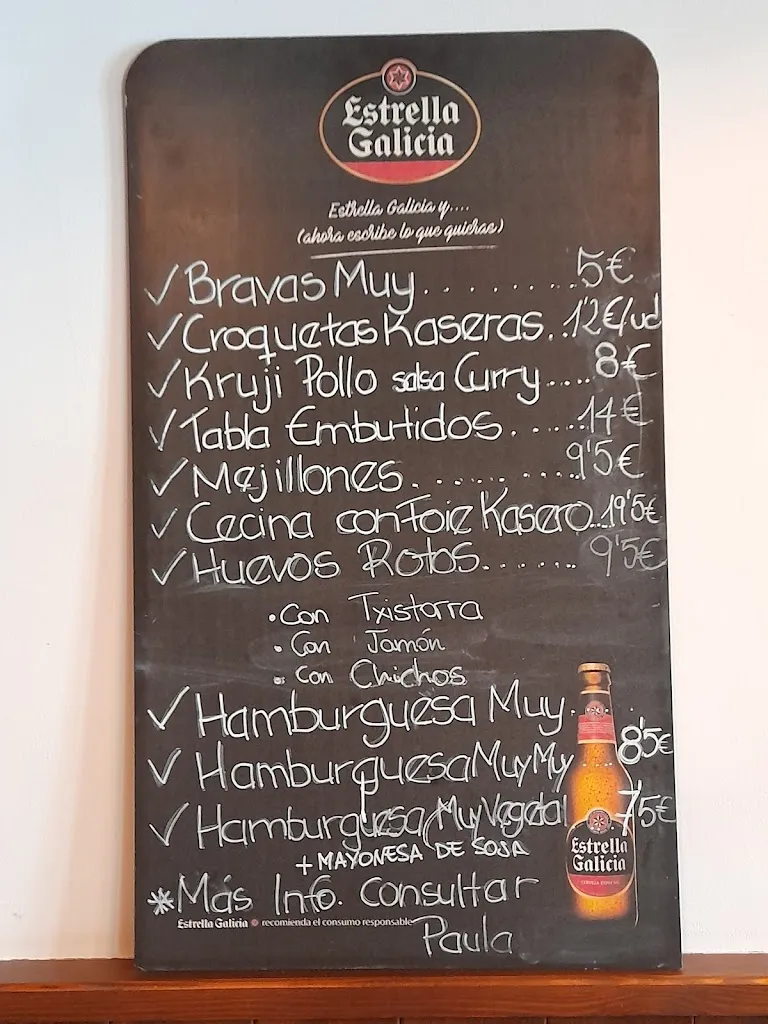 Estrella
Galicia
Estrella Galicia y....
(ahora escribe lo que quieras)
✓ Bravas Muy......... 5€
✓ Croquetas Kaseras.. 1'2€/ud
✓ Kruji Pollo salsa Curry.... 8€
✓ Tabla Embutidos...... 14€
✓ Mejillones.......... 9'5€
✓ Cecina con Foie Kasero.. 19'5€
✓ Huevos Rotos....... 9'5€
• Con Txistorra
• Con Jamón
• Con Chichos
✓ Hamburguesa Muy..
✓ Hamburguesa Muy My 8'5€
✓ Hamburguesa Muy Vegetal 7'5€
+ MAYONESA DE SOJA
* Más Info. Consultar
Paula
Estrella Galicia recomienda el consumo responsable
Estrella
Galicia
CERVEZA ESPECIAL